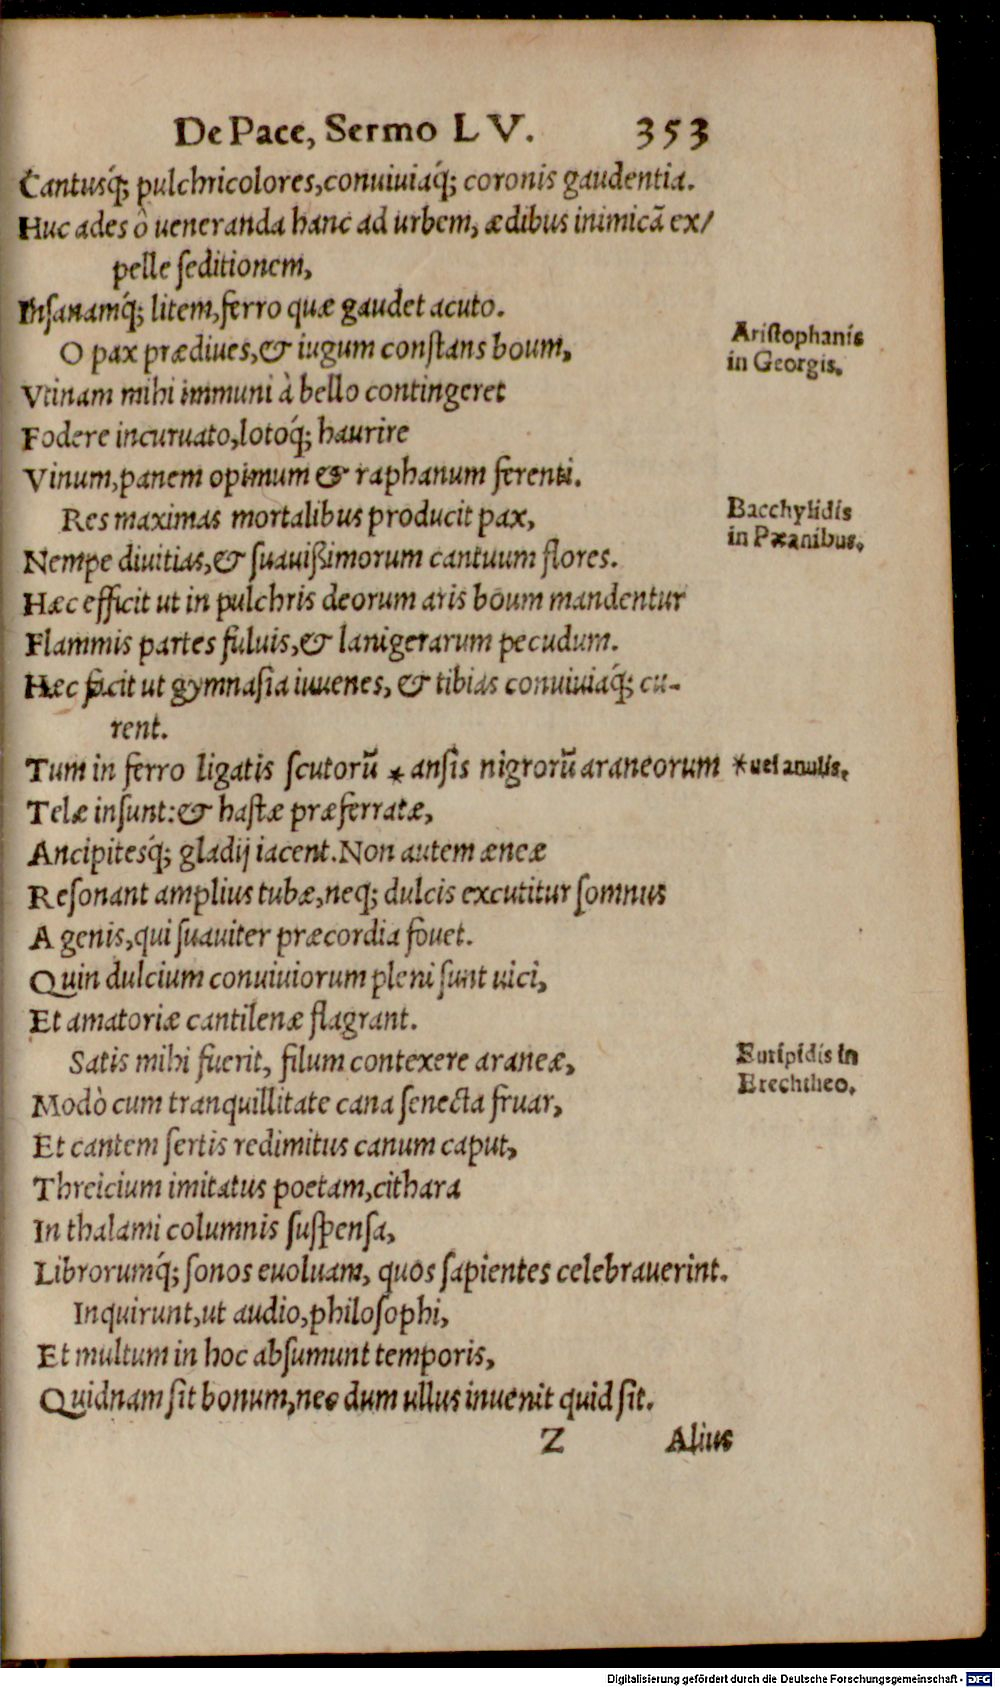 De Pace, Sermo LV. 353
Cantusq́; pulchricolores, conuiuiaq́; coronis gaudentia.
Huc ades ô ueneranda hanc ad urbem, ædibus inimicā ex/
pelle ſeditionem,
Inſanamq́; litem, ferro quæ gaudet acuto.
O pax prædiues, & iugum conſtans boum,
Aristophanis
in Georgis.
Vtinam mihi immuni à bello contingeret
Fodere incuruato, lotoq́; haurire
Vinum, panem opimum & raphanum ferenti.
Res maximas mortalibus producit pax,
Bacchylidis
in Pæanibus.
Nempe diuitias, & ſuauißimorum cantuum flores.
Hæc efficit ut in pulchris deorum aris boum mandentur
Flammis partes fuluis, & lanigerarum pecudum.
Hæc facit ut gymnaſia iuuenes, & tibias conuiuiaq́; cu-
rent.
Tum in ferro ligatis ſcutorū * anſis nigrorū araneorum *uel anulis.
Telæ inſunt: & haſtæ præferratæ,
Ancipitesq́; gladij iacent. Non autem æneæ
Reſonant amplius tubæ, neq; dulcis excutitur ſomnus
A genis, qui ſuauiter præcordia fouet.
Quin dulcium conuiuiorum pleni ſunt uici,
Et amatoriæ cantilenæ flagrant.
Satis mihi fuerit, filum contexere araneæ,
Euripidis in
Erechtheo.
Modò cum tranquillitate cana ſenecta fruar,
Et cantem ſertis redimitus canum caput,
Threicium imitatus poetam, cithara
In thalami columnis ſuſpenſa,
Librorumq́; ſonos euoluam, quos ſapientes celebrauerint.
Inquirunt, ut audio, philoſophi,
Et multum in hoc abſumunt temporis,
Quidnam ſit bonum, nec dum ullus inuenit quid ſit.
Z Alius
Digitalisierung gefördert durch die Deutsche Forschungsgemeinschaft - DFG